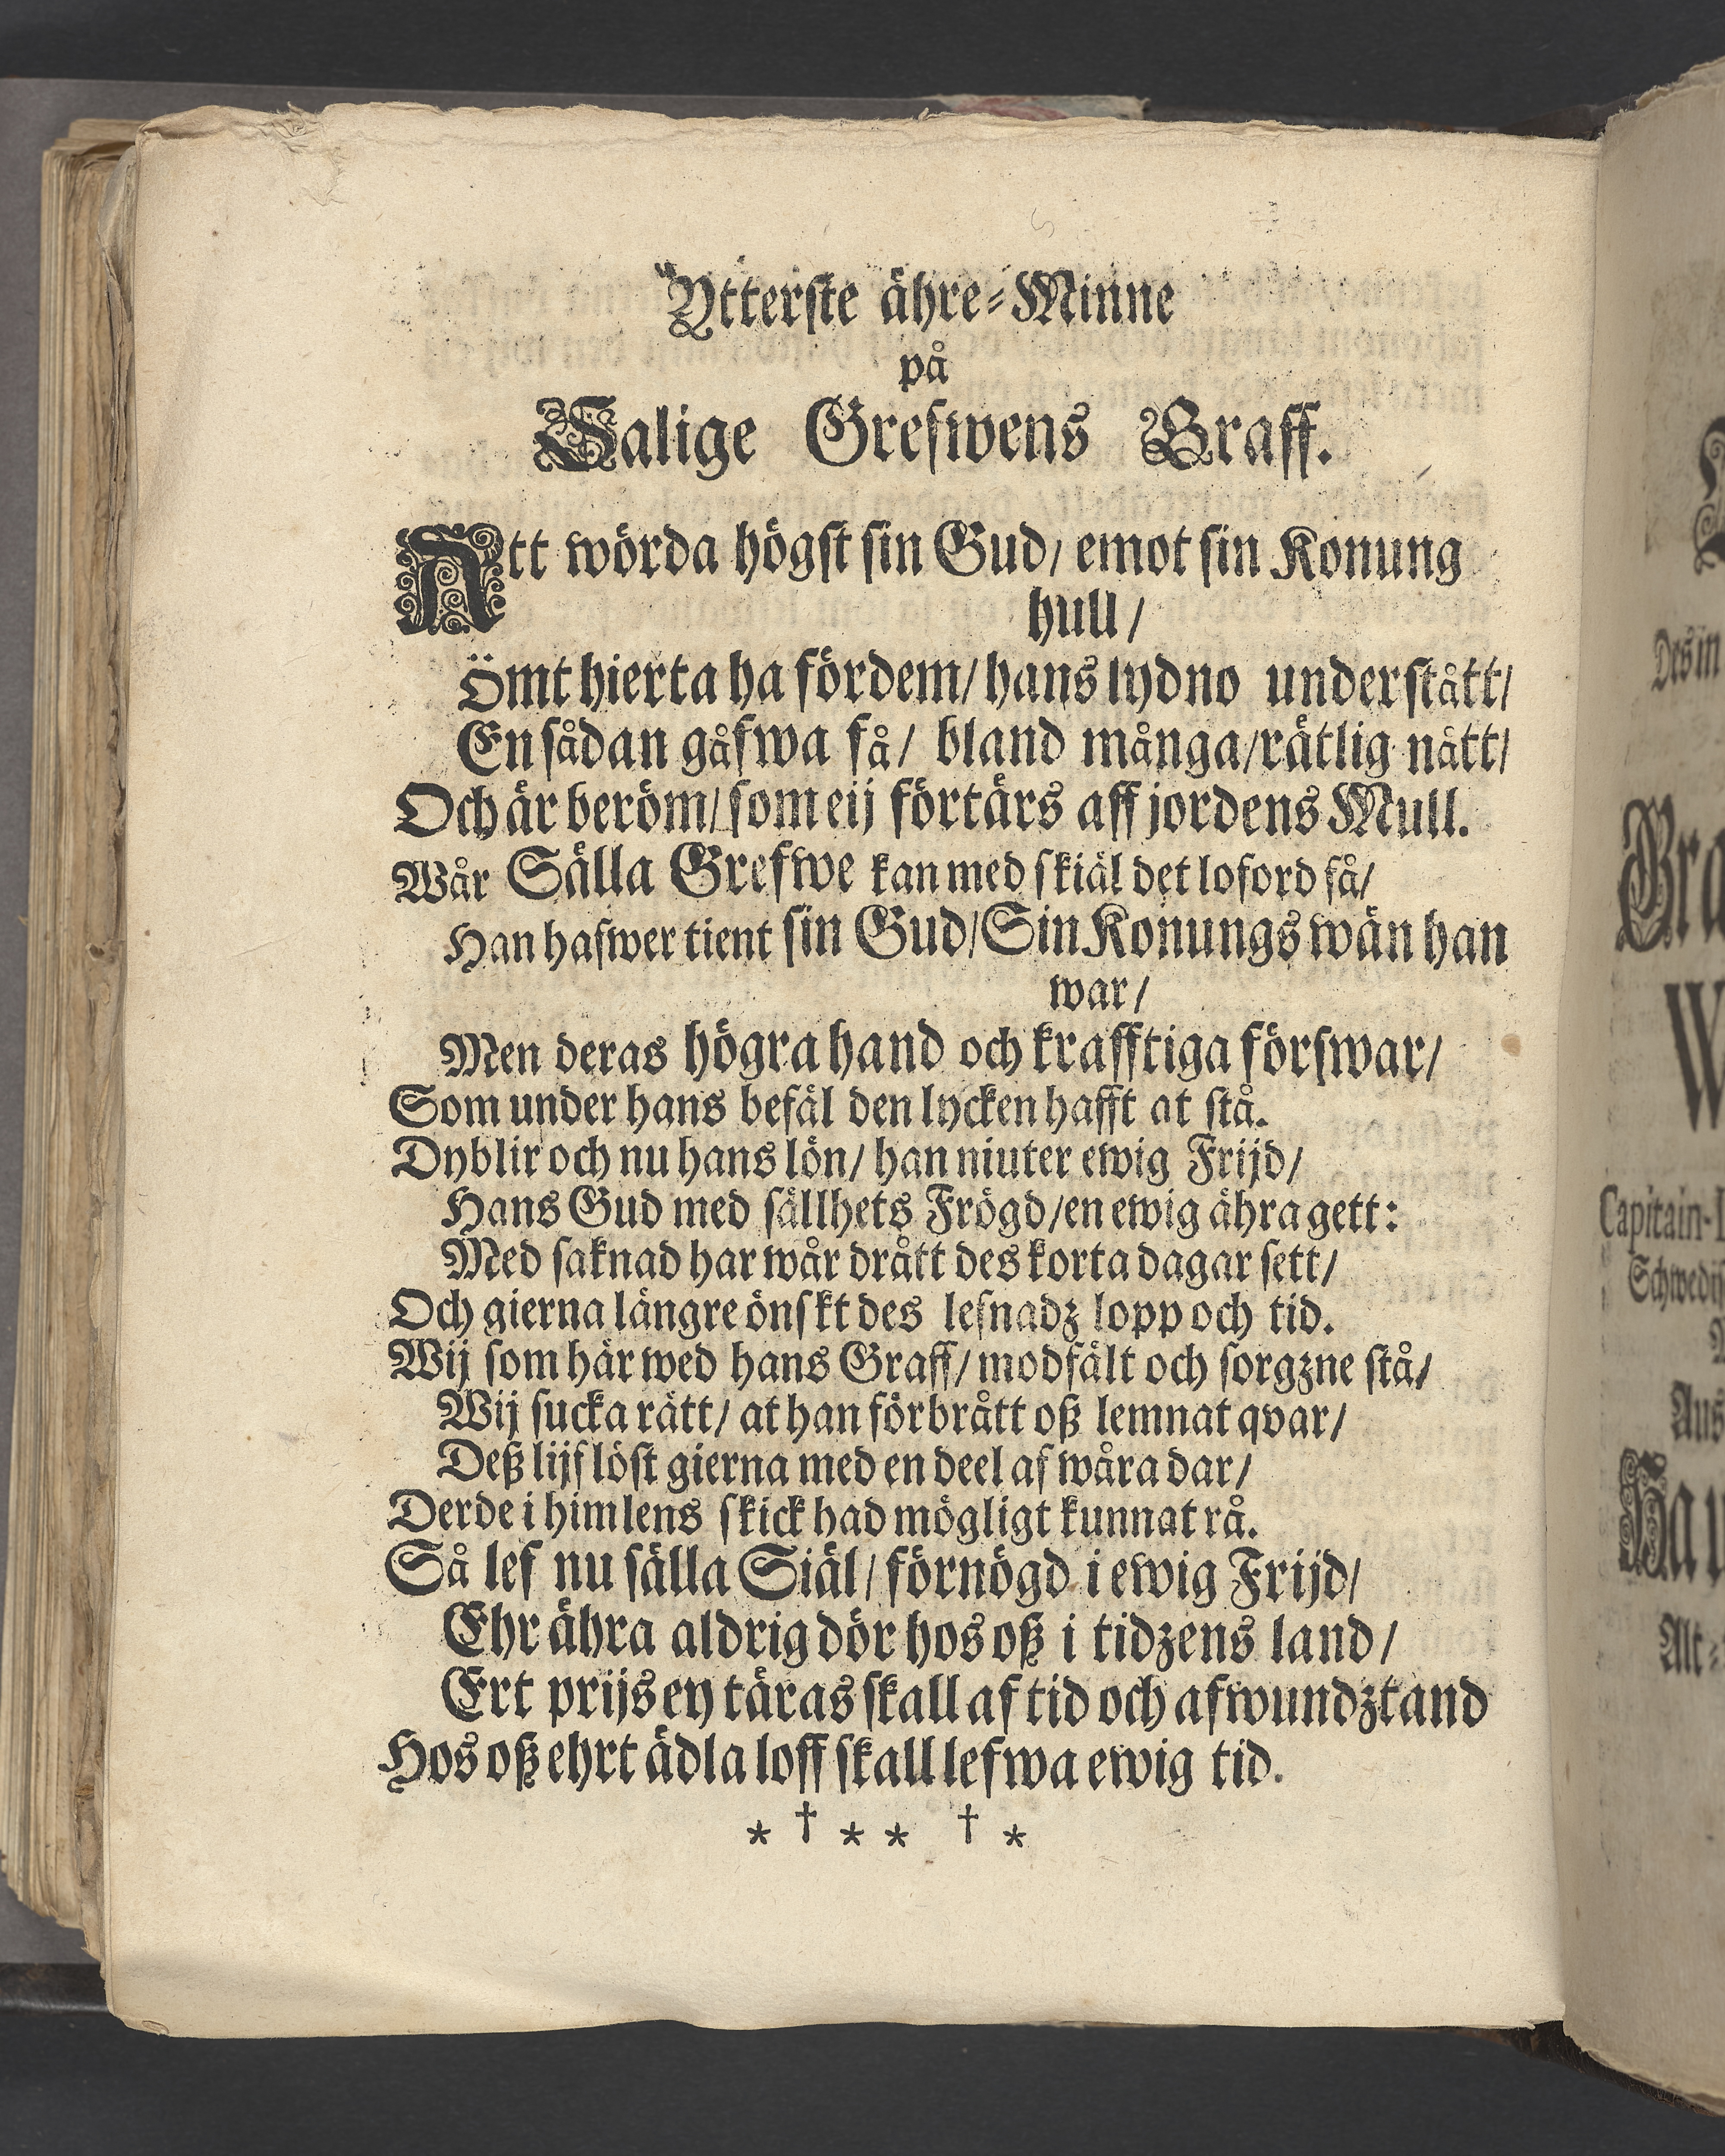 Ytterste ähre-Minne
på
Salige Grefwens Graff.
Att wörda högst sin Gud/ emot sin Konung
hull/
Ömt hierta ha fördem/ hans lydno understått/
En sådan gåfwa få/ bland många/rätlig nått/
Och är beröm/ som eij förtärs aff jordens Mull.
Wår Sälla Grefwe kan med skiäl det loford få/
Han hafwer tient sin Gud/Sin Konungs wän han
war/
Men deras högra hand och krafftiga förswar/
Som under hans befäl den lycken hafft at stå.
Dyblir och nu hans lön/ han niuter ewig Frijd/
Hans Gud med sällhets Frögd/en ewig ähra gett:
Med saknad har wår drått des korta dagar sett/
Och gierna längre önskt des lefnadz lopp och tid.
Wij som här wed hans Graff/ modfält och sorgzne stå/
Wij sucka rätt/ at han förbrått oß lemnat qvar/
Deß lijf löst gierna med en deel af wåra dar/
Derde i himlens skick had mögligt kunnat rå.
Så lef nu sälla Siäl/ förnögd i ewig Frijd/
Ehr ähra aldrig dör hos oß i tidzens land/
Ert prijs ey täras skall af tid och afwundztand
Hos oß ehrt ädla loff skall lefwa ewig tid.
* † * * † *
Des in
Gra
Capitain-L
Schwedis
Aus
Alt-